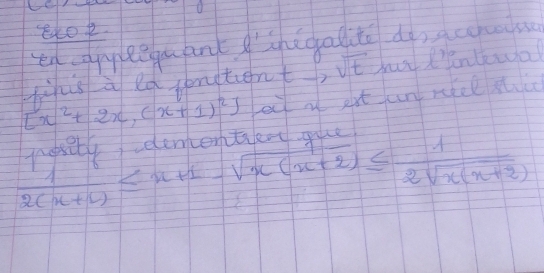 Exo 2
En appliquant l'inégalité des accroissem
finis à la fonction t → √t sur l'interval
[x² + 2x, (x+1)²] où x est un réel strict
positif, démontrer que
1/2(x+1) ≤ x+1 - √x(x+2) ≤ 1/2√x(x+2)